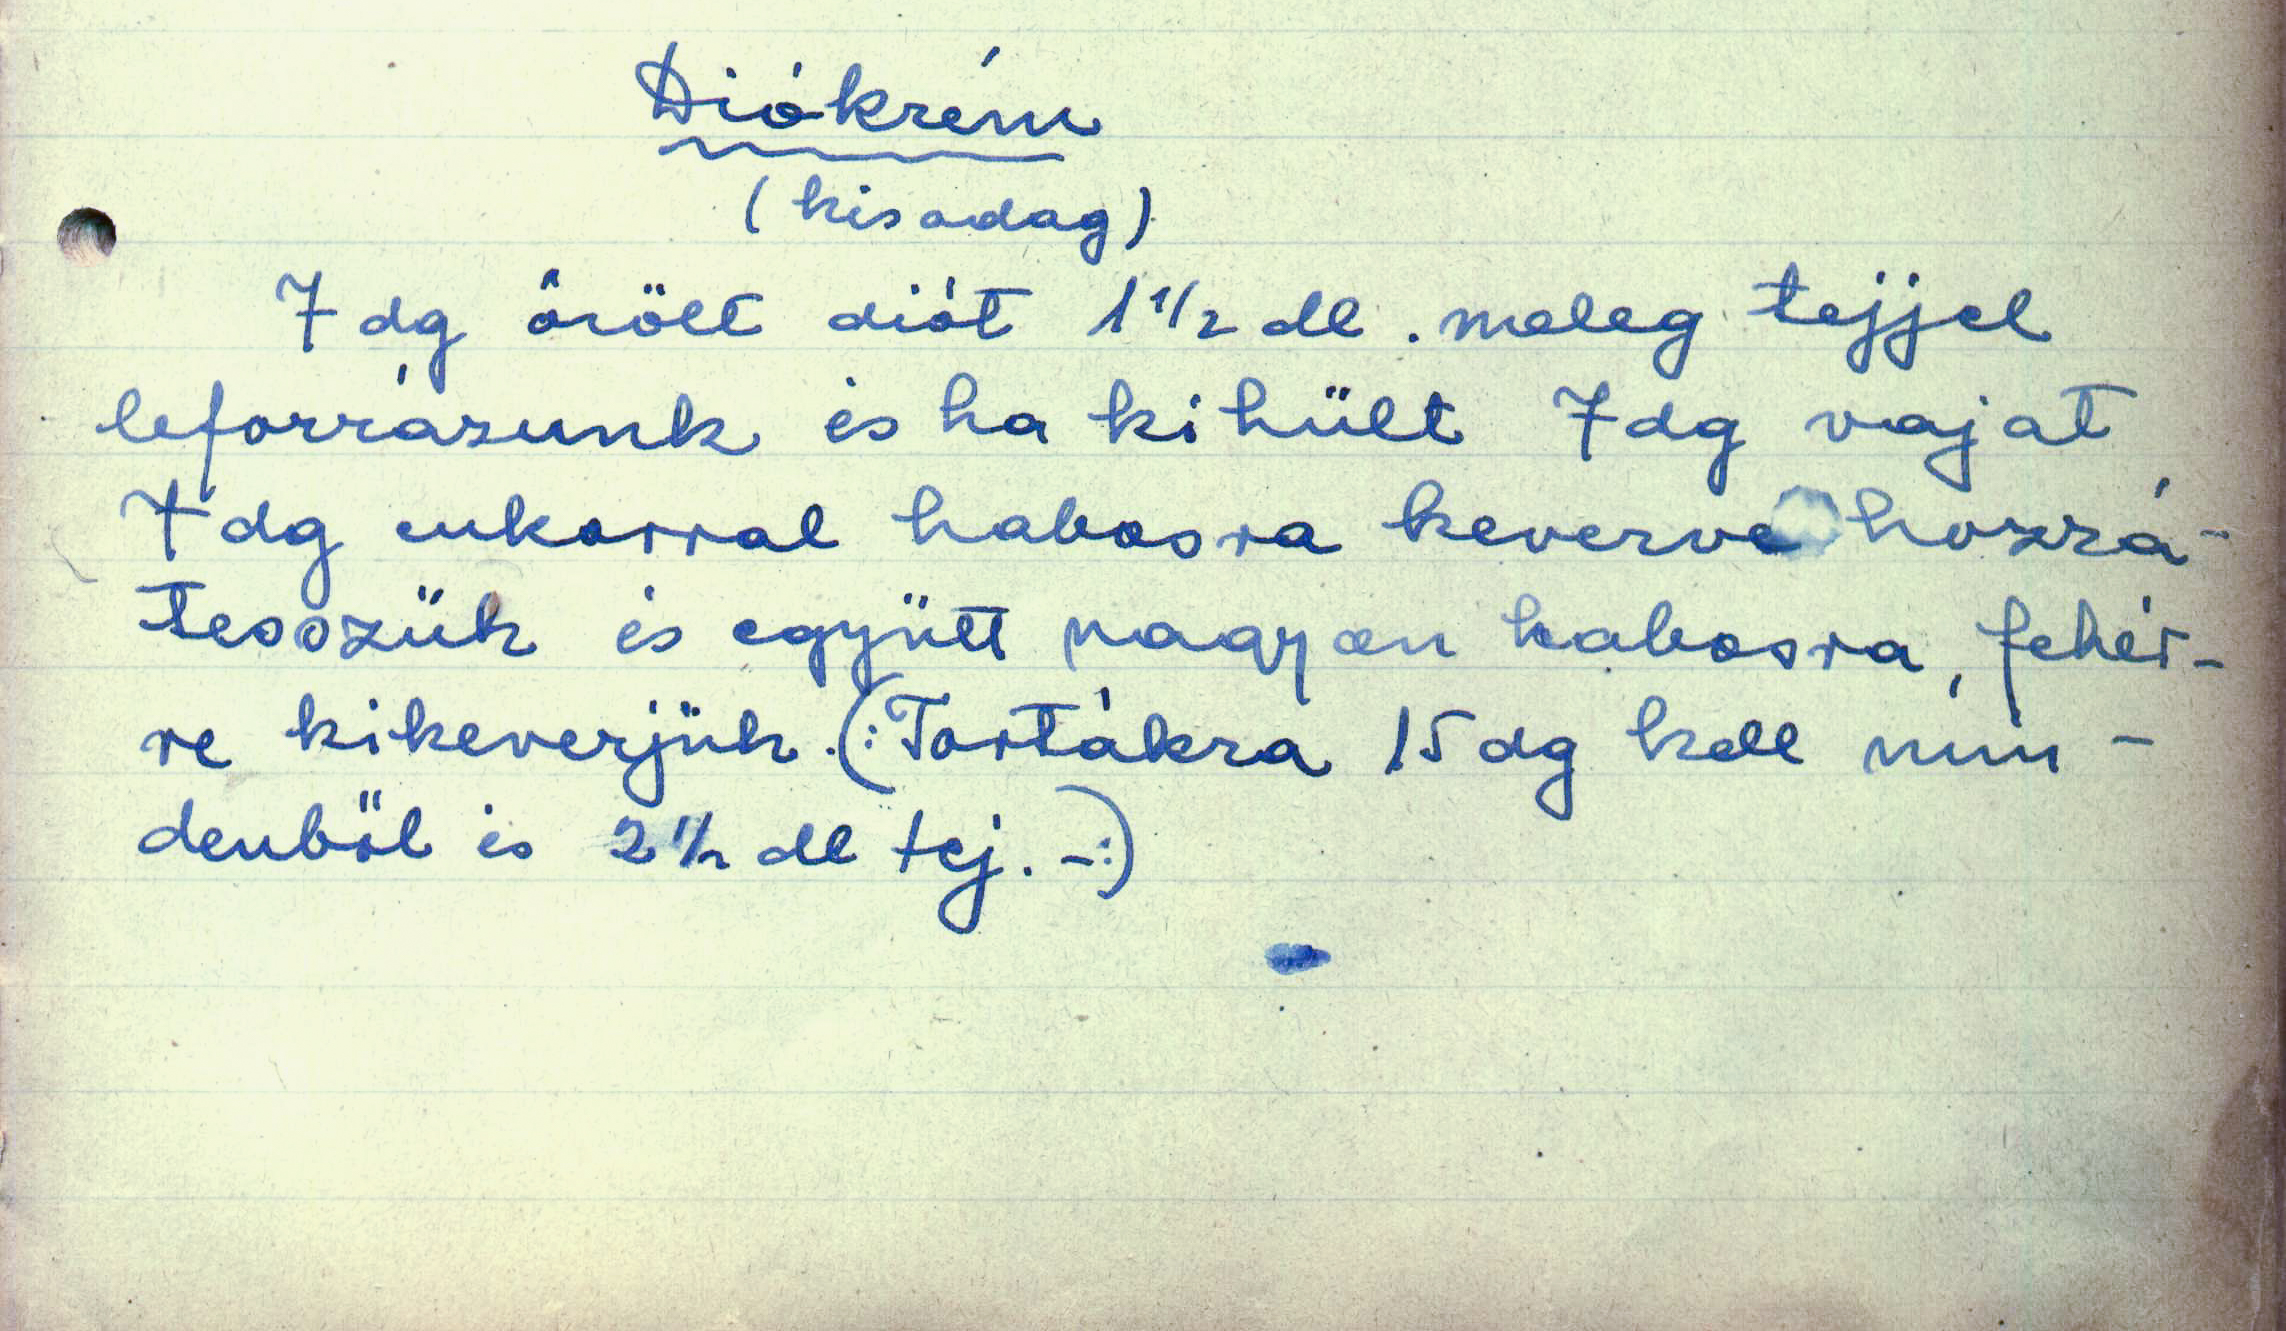 Diókrém
(kisadag)
7 dg őrölt diót 1 1/2 dl. meleg tejjel
leforrázunk és ha kihült 7 dg vajat
7 dg cukorral habosra keverve hozzá-
tesszük és együtt nagyon habosra, fehér-
re kikeverjük. (: Tortákra 15 dg kell min-
denből és 2 1/2 dl tej. -:)